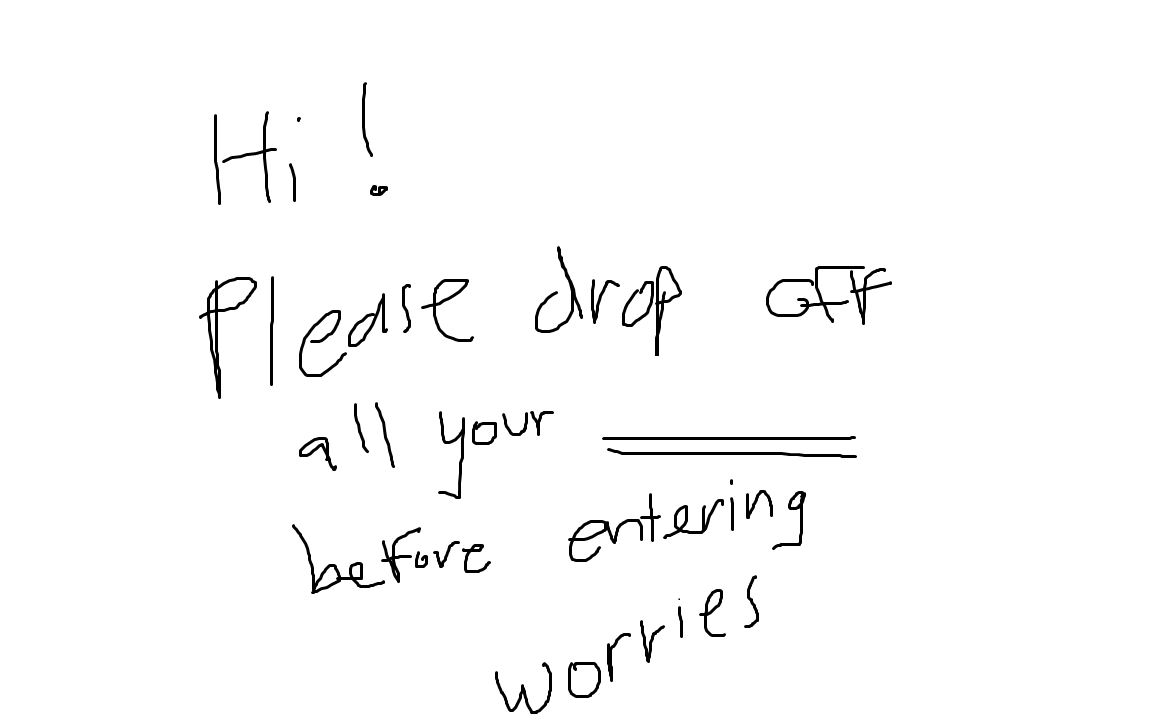 Hi!
Please drop off
all your ______
before entering
worries